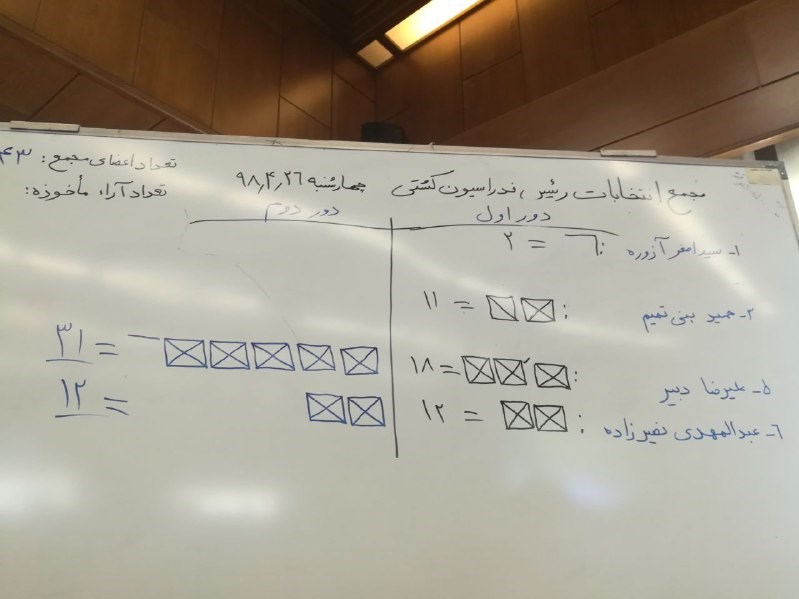 مجمع انتخابات رئیس فدراسیون کشتی چهارشنبه ۹۸٫۴٫۲۶
تعداد اعضای مجمع: ۴۳
تعداد آراء مأخوذه:
دور اول
دور دوم
۱- سید اصغر آزوره : = ۲
۲- حمید بنی تمیم : = ۱۱
۵- علیرضا دبیر : = ۱۸ = ۳۱
۶- عبدالمهدی نصیرزاده : = ۱۲ = ۱۲